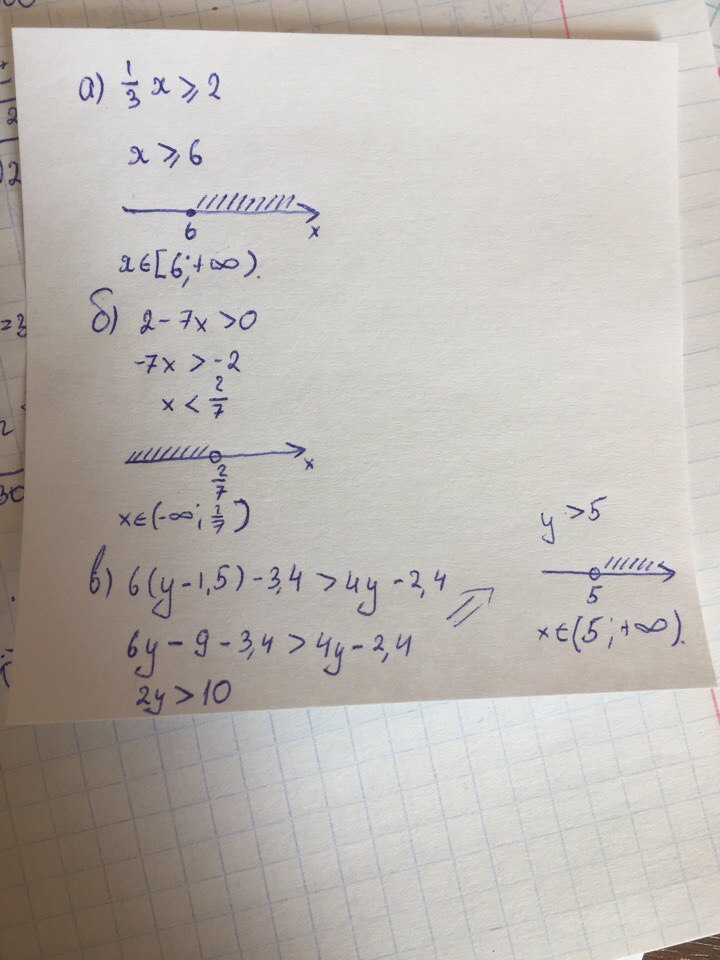 а) 1/3 x ⩾ 2
x ⩾ 6
6 x
x∈[6;+∞).
б) 2-7x>0
-7x > -2
x < 2/7
2/7 x
x∈(-∞; 2/7)
в) 6(y-1,5)-3,4 > 4y-2,4
6y-9-3,4 > 4y-2,4
2y>10
y>5
5
x∈(5;+∞).